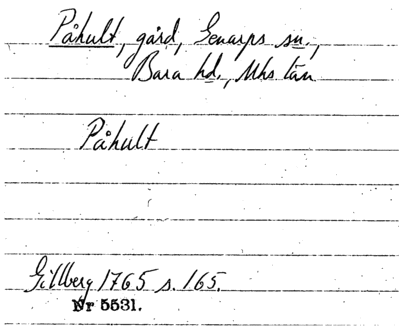 Påhult, gård, Genarps sn.,
Bara hd., Mhs län
Påhult
Gillberg 1765 s. 165.
Nr 5531.